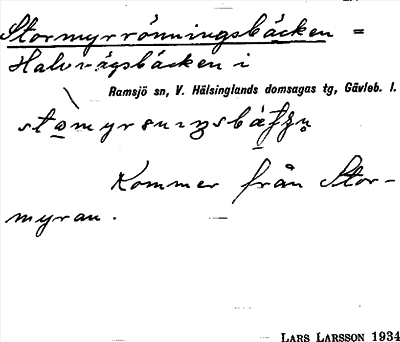 Stormyrrönningsbäcken =
Halvvägsbäcken i
Ramsjö sn, V. Hälsinglands domsagas tg, Gävleb. l.
Kommer från Stor-
myran.
LARS LARSSON 1934